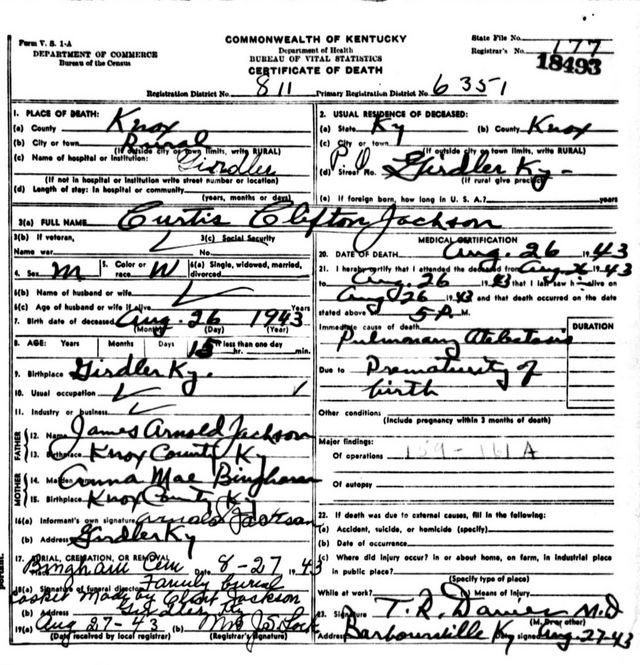 Form V. S. 1-A
DEPARTMENT OF COMMERCE
Bureau of the Census
COMMONWEALTH OF KENTUCKY
Department of Health
BUREAU OF VITAL STATISTICS
CERTIFICATE OF DEATH
State File No.
Registrar's No. 177
18493
Registration District No. 811 Primary Registration District No. 6351
1. PLACE OF DEATH:
(a) County Knox
(b) City or town Rural
(If outside city or town limits, write RURAL)
(c) Name of hospital or institution: Girdler
(If not in hospital or institution write street number or location)
(d) Length of stay: In hospital or community
(years, months or days)
2. USUAL RESIDENCE OF DECEASED:
(a) State Ky (b) County Knox
(c) City or town
(If outside city or town limits, write RURAL)
(d) Street No. P.O Girdler Ky-
(If rural give precinct)
(e) If foreign born, how long in U. S. A.? years
3(a) FULL NAME Curtis Clifton Jackson
3(b) If veteran, 3(c) Social Security
Name war No.
4. Sex M 5. Color or race W 6(a) Single, widowed, married, divorced
6(b) Name of husband or wife
6(c) Age of husband or wife if alive Years
7. Birth date of deceased Aug. 26 1943
(Month) (Day) (Year)
8. AGE: Years Months Days If less than one day
15 hr. min.
9. Birthplace Girdler Ky.
10. Usual occupation
11. Industry or business
FATHER
12. Name James Arnold Jackson
13. Birthplace Knox County Ky
MOTHER
14. Maiden Anna Mae Bingham
15. Birthplace Knox County Ky
16(a) Informant's own signature Arnold Jackson
(b) Address Girdler Ky
17. BURIAL, CREMATION, OR REMOVAL
Bingham Cem Date 8-27 1943
18(a) Signature of funeral director Family burial
casket Made by Clint Jackson
(b) Address Girdler Ky
19(a) Aug 27-43 (b) Mrs J.S.
(Date received by local registrar) (Registrar's signature)
MEDICAL CERTIFICATION
20. DATE OF DEATH Aug. 26 1943
21. I hereby certify that I attended the deceased from Aug 26 1943
to Aug. 26 1943 that I last saw h alive on
Aug 26 1943 and that death occurred on the date
stated above at 5 P. M.
Immediate cause of death DURATION
Pulmonary Atelectasis
Due to Prematurity of
birth
Other conditions:
(Include pregnancy within 3 months of death)
Major findings:
Of operations 159-161A
Of autopsy
22. If death was due to external causes, fill in the following:
(a) Accident, suicide, or homicide (specify)
(b) Date of occurrence
(c) Where did injury occur? in or about home, on farm, in industrial place
in public place?
(Specify type of place)
While at work? (e) Means of injury
23. Signature T. R. Davies M.D
(M. D. or other)
Address Barbourville Ky signed Aug. 27-43